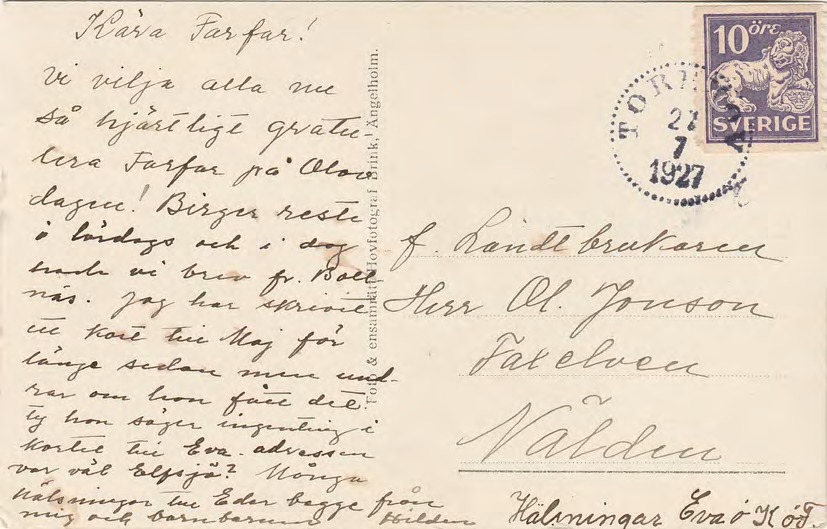 Kära Farfar!
Vi vilja alla nu
så hjärtligt gratu-
lera Farfar på Olov
dagen! Birger reste
i lördags och i dag
hade vi brev fr. Boll-
näs. Jag har skrivit
ett kort till Maj för
länge sedan men und-
rar om hon fått det
ty hon säger ingenting i
kortet till Eva. adressen
var väl Elfsjö? Många
hälsningar till Eder bägge från
mig och barnbarnen Hilden
Foto & ensamrätt: Hovfotograf Brink, Ängelholm.
10 öre
SVERIGE
27
7
1927
f. Landtbrukaren
Herr Ol. Jonson
Faxelven
Nälden
Hälsningar Eva o K o F.